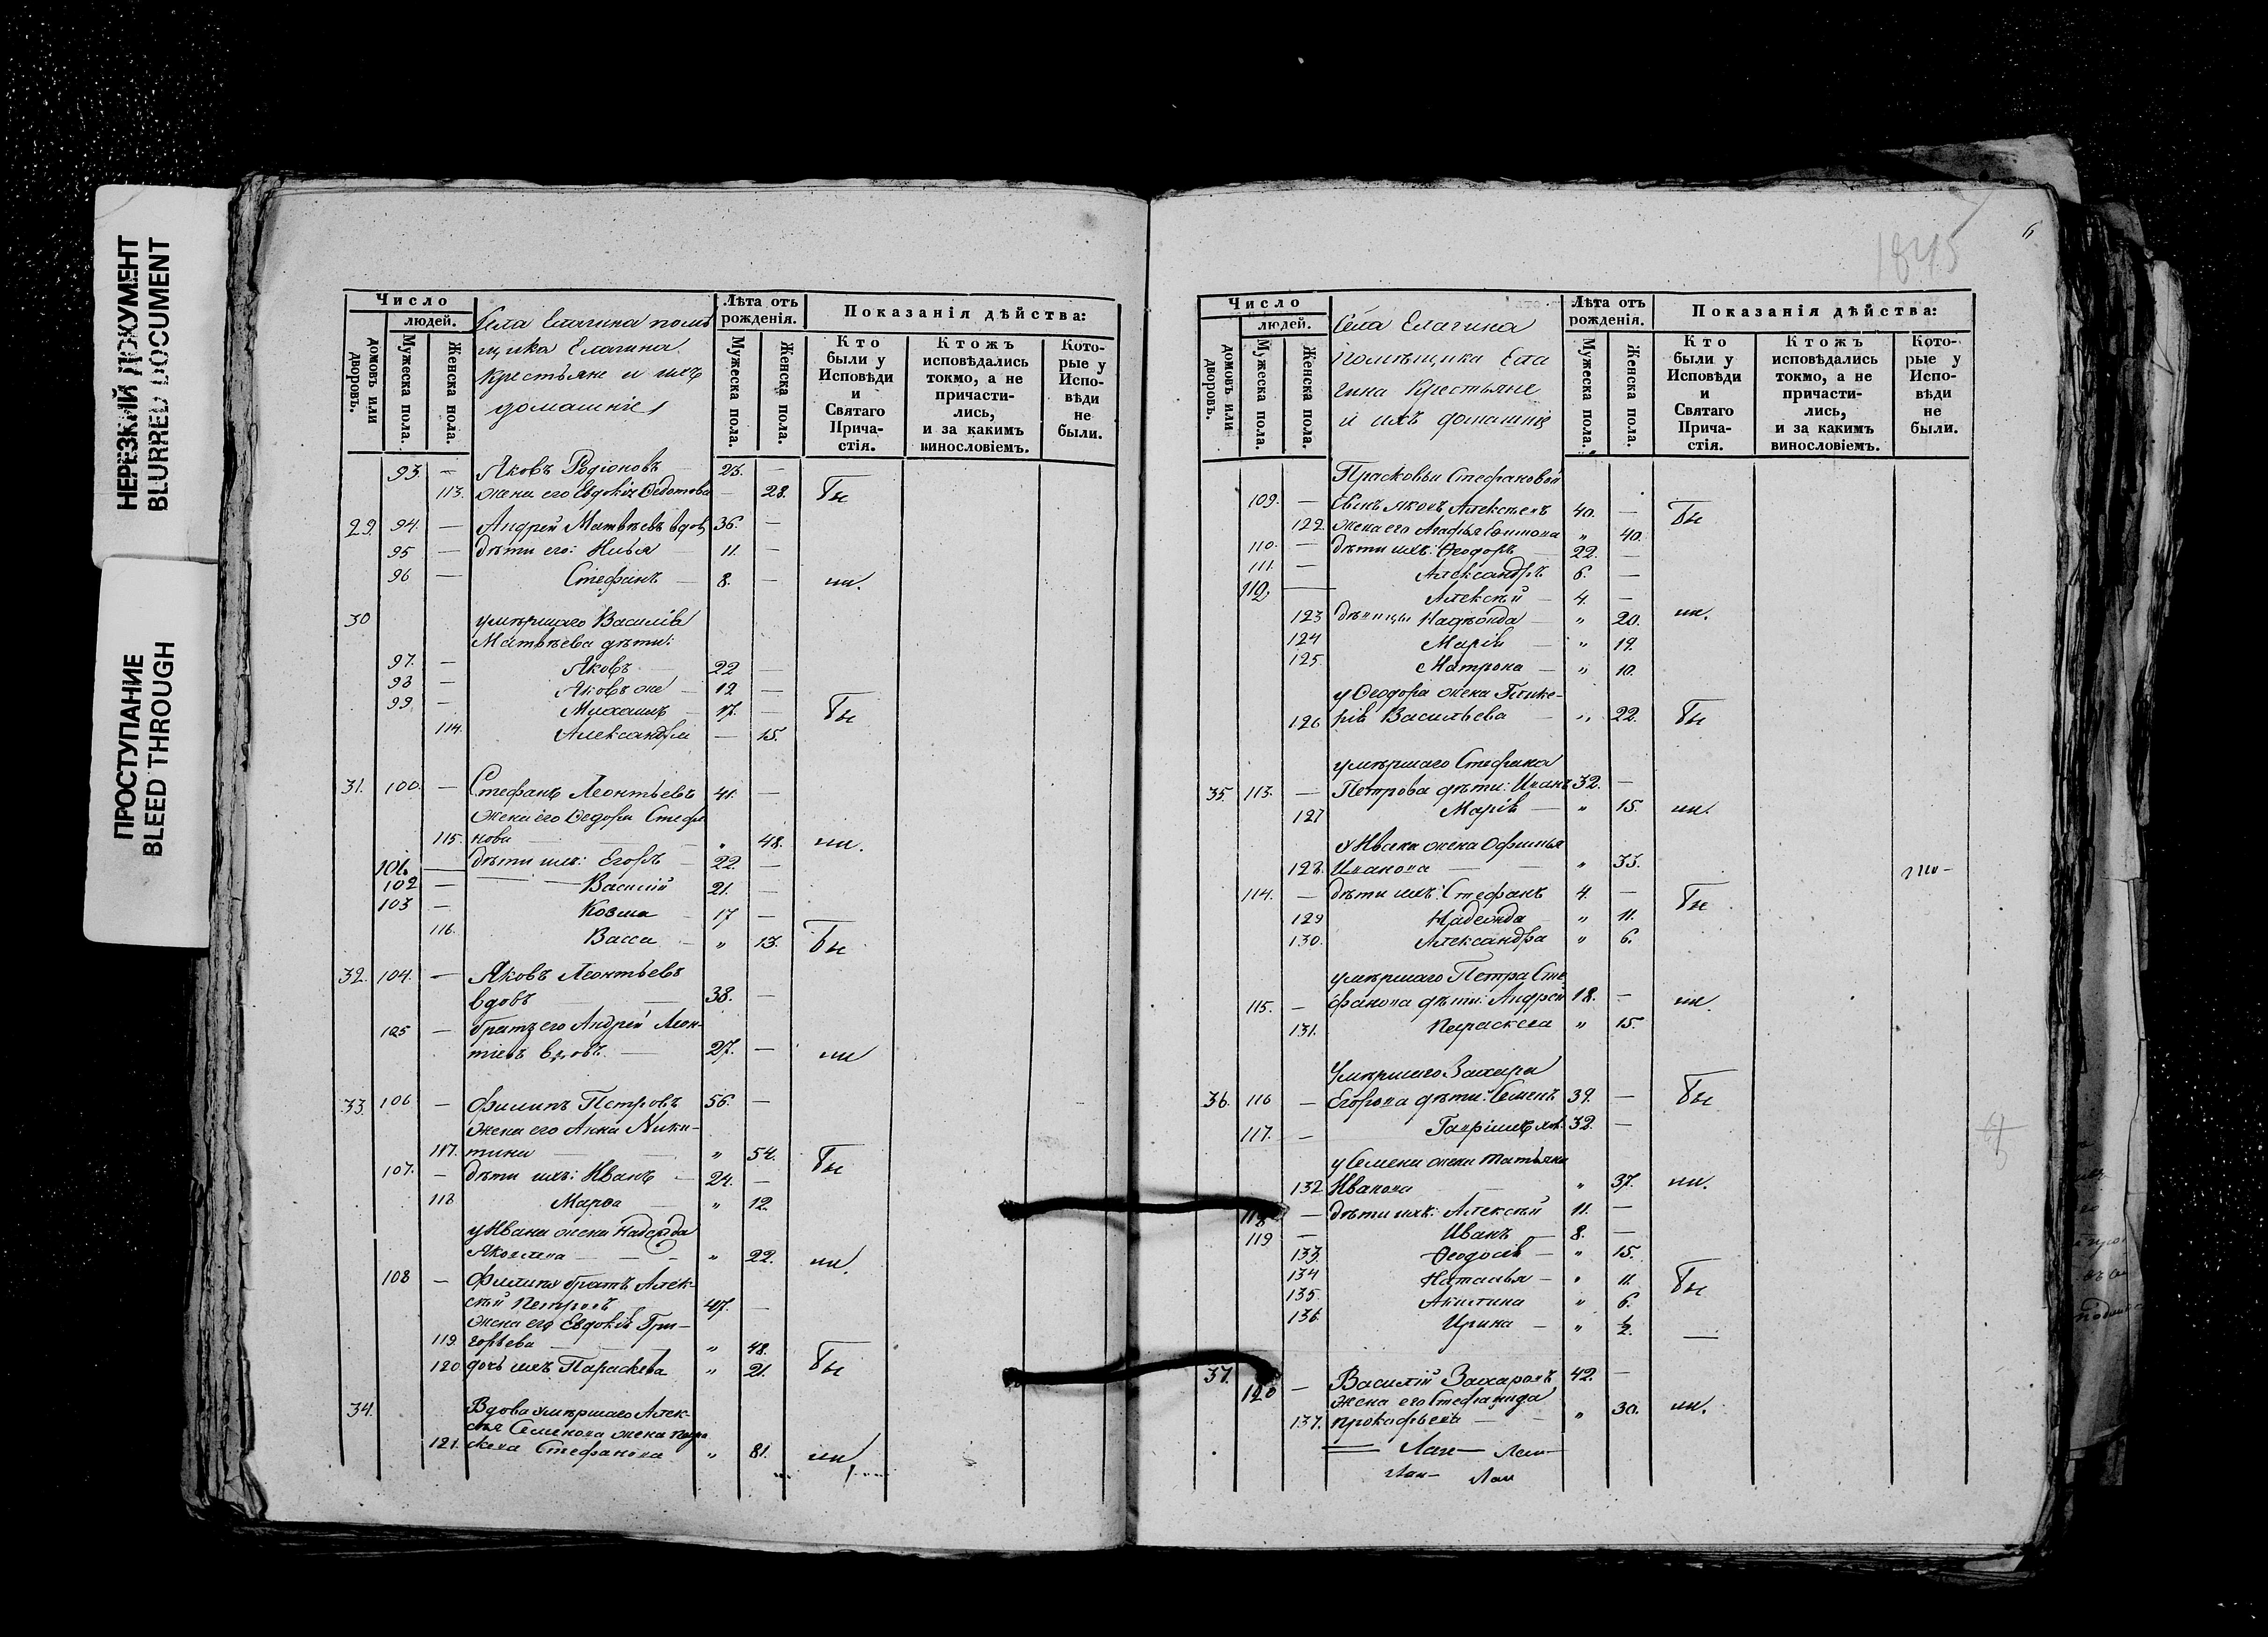 НЕРЕЗКИЙ ДОКУМЕНТ
BLURRED DOCUMENT
ПРОСТУПАНИЕ
BLEED THROUGH
Число
людей.
домовъ или дворовъ.
Мужеска пола.
Женска пола.
Села Елагина помѣ
щика Елагина
крестьяне и ихъ
домашніе
Лѣта отъ рожденія.
Мужеска пола.
Женска пола.
Показанія дѣйства:
Кто были у Исповѣди и Святаго Прича-стія.
Ктожъ исповѣдались токмо, а не причасти-лись, и за какимъ винословіемъ.
Кото-рые у Испо-вѣди не были.
93. — Яковъ Родіоновъ 23. —
113. жена его Евдокія Ѳедотова — 28. Бы
29. 94. — Андрей Матвѣевъ вдов 36. —
95 — дѣти его: Илья 11. —
96 — Стефанъ — 8. — ли.
30 умершаго Василія
Матвѣева дѣти:
97. — Яковъ 22 —
98 — Яковъ же 12 —
99 — Михаилъ 17. — Бы
114. Александра — 15.
31. 100. — Стефанъ Леонтьевъ 41. —
жена его Ѳедора Стефа
115. нова „ 48. ли.
101. — дѣти ихъ: Егоръ 22. —
102 — Василій 21. —
103 — Козма 17 —
116. Васса „ 13. Бы
32. 104. — Яковъ Леонтьевъ
вдовъ 38. —
105 — братъ его Андрей Леон-
тіевъ вдовъ. — 27. — ли
33. 106 — Филипъ Петровъ 56. —
жена его Анна Ники-
117. тина „ 54. Бы
107. — дѣти ихъ: Иванъ 24. —
118 Марѳа „ 12.
у Ивана жена Надежда
Яковлева „ 22. ли.
108 — Филипа братъ Алек-
сѣй Петровъ 47. —
жена его Евдокія Гри-
119. горьева „ 48.
120. дочь ихъ Параскева „ 21. Бы
34. Вдова умершаго Алек-
сѣя Семенова жена
121. Стефанова „ 81. ли
1845
6
Число
людей.
домовъ или дворовъ.
Мужеска пола.
Женска пола.
Села Елагина
помѣщика Ела
гина крестьяне
и ихъ домашніе
Лѣта отъ рожденія.
Мужеска пола.
Женска пола.
Показанія дѣйства:
Кто были у Исповѣди и Святаго Прича-стія.
Ктожъ исповѣдались токмо, а не причасти-лись, и за какимъ винословіемъ.
Кото-рые у Испо-вѣди не были.
Прасковьи Стефановой
109. — Алексѣевъ 40. — Бы
122. жена его Агафья „ 40.
110. — дѣти ихъ: Ѳеодоръ 22. —
111. — Александръ 6. —
112. — Алексѣй — 4. —
123 дѣвицы Надежда — „ 20. ли.
124 Марія — „ 19.
125. Матрона — „ 10.
у Ѳеодора жена Глике-
126 рія Васильева „ 22. Бы
умершаго Стефана
35. 113. — Петрова дѣти: Иванъ 32. —
127 Марія — „ 15. ли.
у Ивана жена Офимья
128. Иванова — „ 33.
114. — дѣти ихъ: Стефанъ 4. — Бы
129 Надежда „ 11.
130. Александра „ 6.
умершаго Петра Сте
115. — фанова дѣти: Андрей 18. — ли.
131. Параскева „ 15.
Умершаго Захара
36. 116 — Егорова дѣти: Семенъ 39. — Бы
117. — Гавріилъ 32. —
у Семена жена Татьяна
132 Иванова „ 37. ли.
118 — дѣти ихъ: Алексѣй 11. —
119 — Иванъ 8. —
133. Ѳеодосія — „ 15.
134 Наталья — „ 11. Бы
135. Акилина „ 6.
136. Ирина — „ ½. —
37. 120 — Василій Захаровъ 42. —
жена его Стефанида
137. Прокофьева — „ 30. ли.